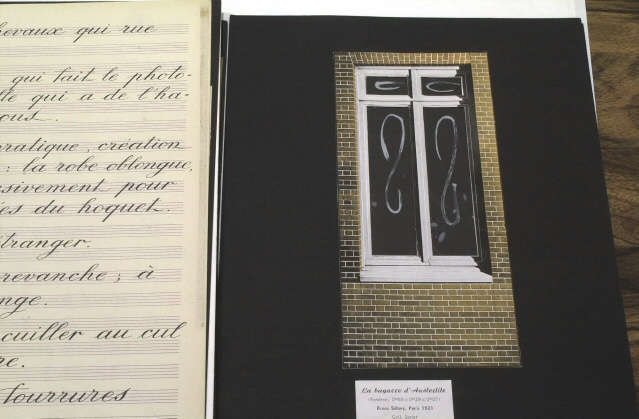 hevaux qui rue
qui fait le photo-
lle qui a de l'ha-
ous.
pratique, création
: la robe oblongue,
sivement pour
es du hoquet.
étranger.
revanche ; à
nge.
cuiller au cul
re.
fourrures
La bagarre d'Austerlitz
Rrose Sélavy, Paris 1921